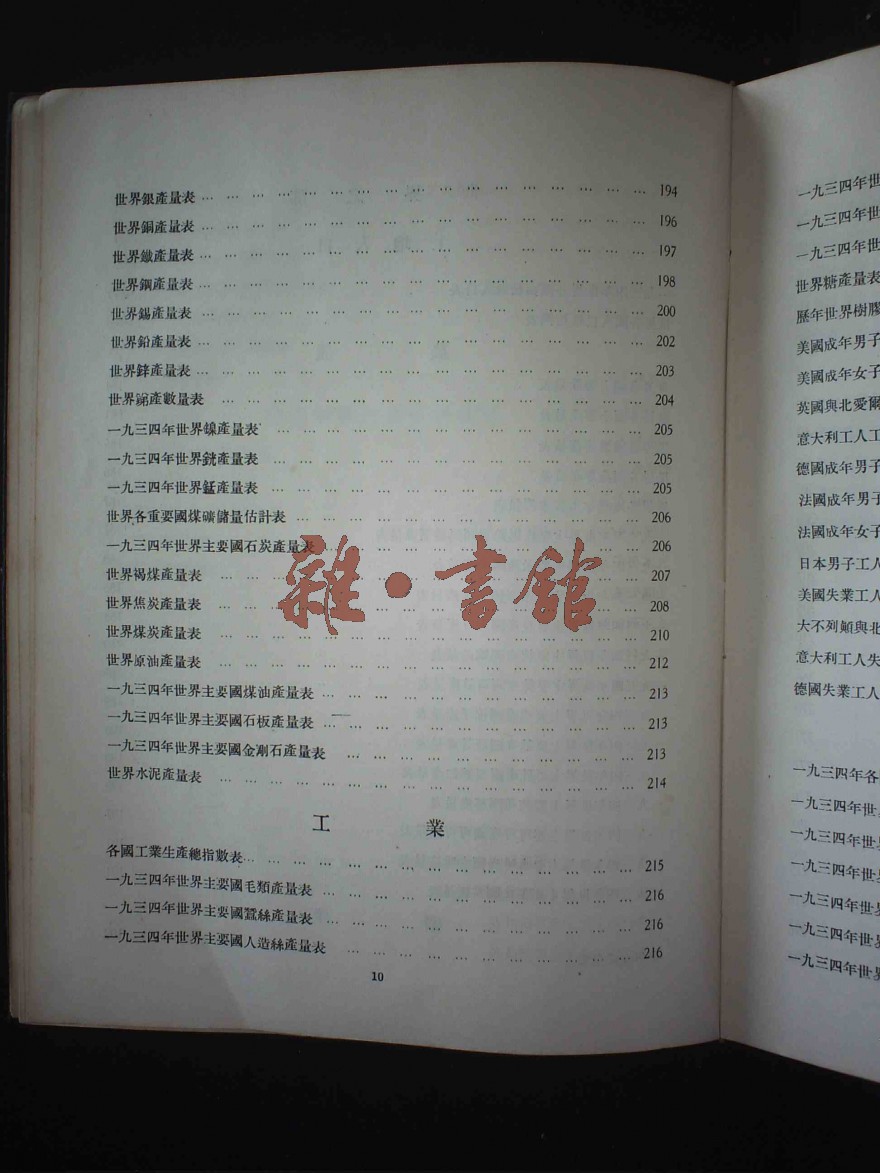 世界銀產量表 … … … … … … … … … … … … … … … … … … 194
世界銅產量表 … … … … … … … … … … … … … … … … … … 196
世界鐵產量表 … … … … … … … … … … … … … … … … … … 197
世界鋼產量表 … … … … … … … … … … … … … … … … … … 198
世界錫產量表 … … … … … … … … … … … … … … … … … … 200
世界鉛產量表 … … … … … … … … … … … … … … … … … … 202
世界鋅產量表 … … … … … … … … … … … … … … … … … … 203
世界銻產數量表 … … … … … … … … … … … … … … … … … 204
一九三四年世界鎳產量表 … … … … … … … … … … … … … … 205
一九三四年世界銧產量表 … … … … … … … … … … … … … … 205
一九三四年世界錳產量表 … … … … … … … … … … … … … … 205
世界各重要國煤礦儲量估計表 … … … … … … … … … … … … … 206
一九三四年世界主要國石炭產量表 … … … … … … … … … … … … 206
世界褐煤產量表 … … … … … … … … … … … … … … … … 207
世界焦炭產量表 … … … … … … … … … … … … … … … … 208
世界煤炭產量表 … … … … … … … … … … … … … … … … 210
世界原油產量表 … … … … … … … … … … … … … … … … 212
一九三四年世界主要國煤油產量表 … … … … … … … … … … … … 213
一九三四年世界主要國石板產量表 … … … … … … … … … … … … 213
一九三四年世界主要國金剛石產量表 … … … … … … … … … … … 213
世界水泥產量表 … … … … … … … … … … … … … … … … 214
工 業
各國工業生產總指數表 … … … … … … … … … … … … … … … 215
一九三四年世界主要國毛類產量表 … … … … … … … … … … … … 216
一九三四年世界主要國蠶絲產量表 … … … … … … … … … … … … 216
一九三四年世界主要國人造絲產量表 … … … … … … … … … … … 216
10
雜·書館
一九三四年世
一九三四年世
一九三四年世
世界糖產量表
歷年世界樹膠
美國成年男子
美國成年女子
英國與北愛爾
意大利工人工
德國成年男子
法國成年男子
法國成年女子
日本男子工人
美國失業工人
大不列顛與北
意大利工人失
德國失業工人
一九三四年各
一九三四年世
一九三四年世
一九三四年世
一九三四年世
一九三四年世
一九三四年世